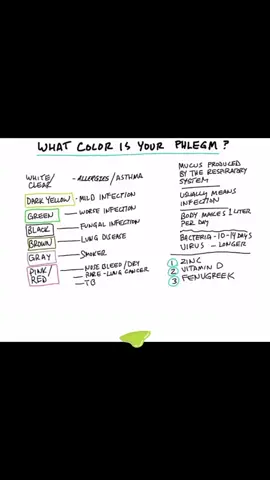 WHAT COLOR IS YOUR PHLEGM?
WHITE/
CLEAR
- ALLERGIES/ASTHMA
DARK YELLOW - MILD INFECTION
GREEN — WORSE INFECTION
BLACK — FUNGAL INFECTION
BROWN — LUNG DISEASE
GRAY — SMOKER
PINK/
RED
— NOSE BLEED/DRY
— RARE - LUNG CANCER
— TB
MUCUS PRODUCED
BY THE RESPIRATORY
SYSTEM
USUALLY MEANS
INFECTION
BODY MAKES 1 LITER
PER DAY
BACTERIA - 10-14 DAYS
VIRUS - LONGER
1 ZINC
2 VITAMIN D
3 FENUGREEK